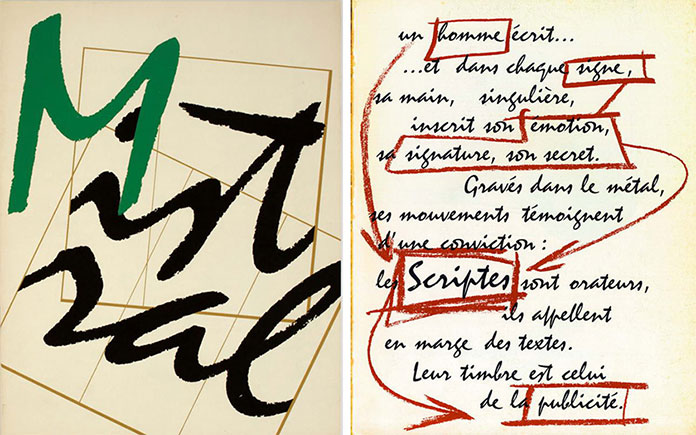 Mist
ral
un homme écrit...
...et dans chaque signe,
sa main, singulière,
inscrit son émotion,
sa signature, son secret.
Gravés dans le métal,
ses mouvements témoignent
d'une conviction :
les Scriptes sont orateurs,
ils appellent
en marge des textes.
Leur timbre est celui
de la publicité.